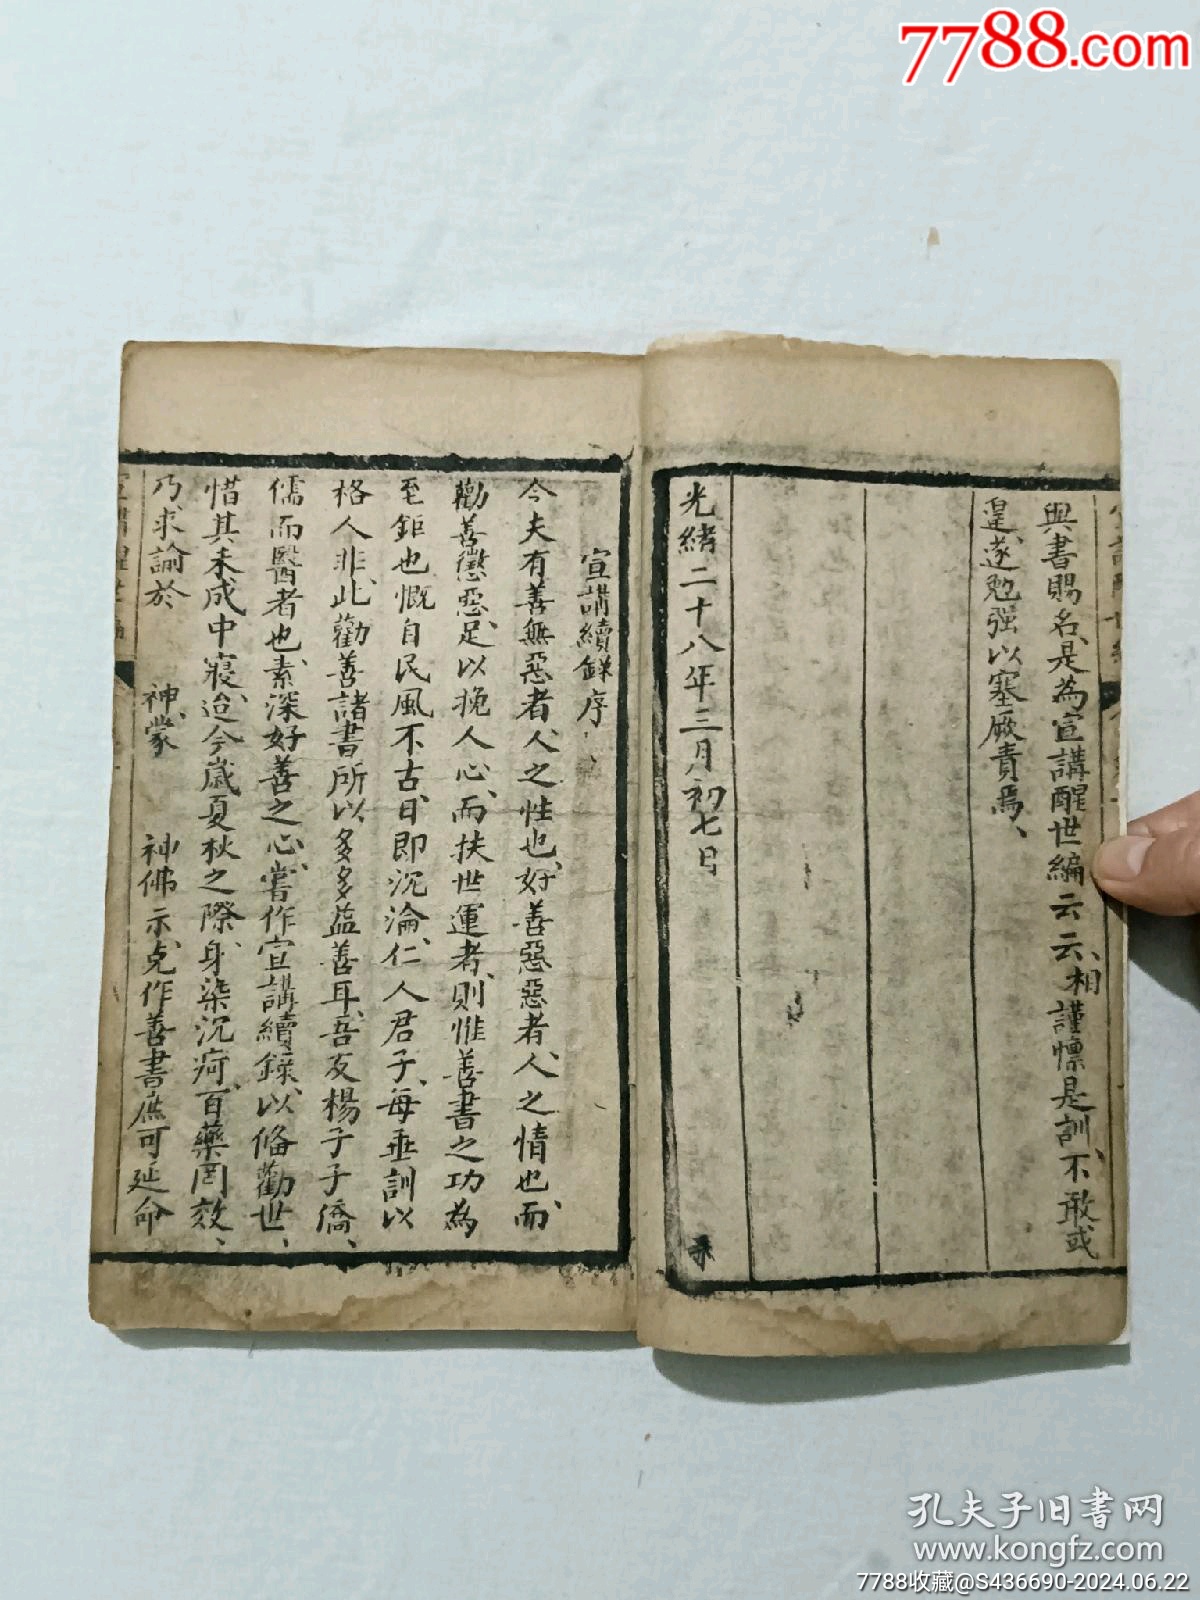 7788.com
與書賜名、是為宣講醒世編云云、相謹懍是訓、不敢或
遑、遂勉强以塞厥責焉、
光緒二十八年三月初七日
宣講續錄序
今夫有善無惡者、人之性也、好善惡惡者、人之情也、而
勸善懲惡、足以挽人心、而扶世運者、則惟善書之功為
至鉅也、慨自民風不古、日即沉淪、仁人君子、每垂訓以
格人非、此勸善諸書所以多多益善耳、吾友楊子子僑、
儒而醫者也、素深好善之心、嘗作宣講續錄、以俻勸世、
惜其未成中寢、迨今歲夏秋之際、身染沉疴、百藥罔效、
乃求諭於 神、蒙 神佛示、克作善書、庶可延命
孔夫子旧书网
www.kongfz.com
7788收藏@S436690-2024.06.22